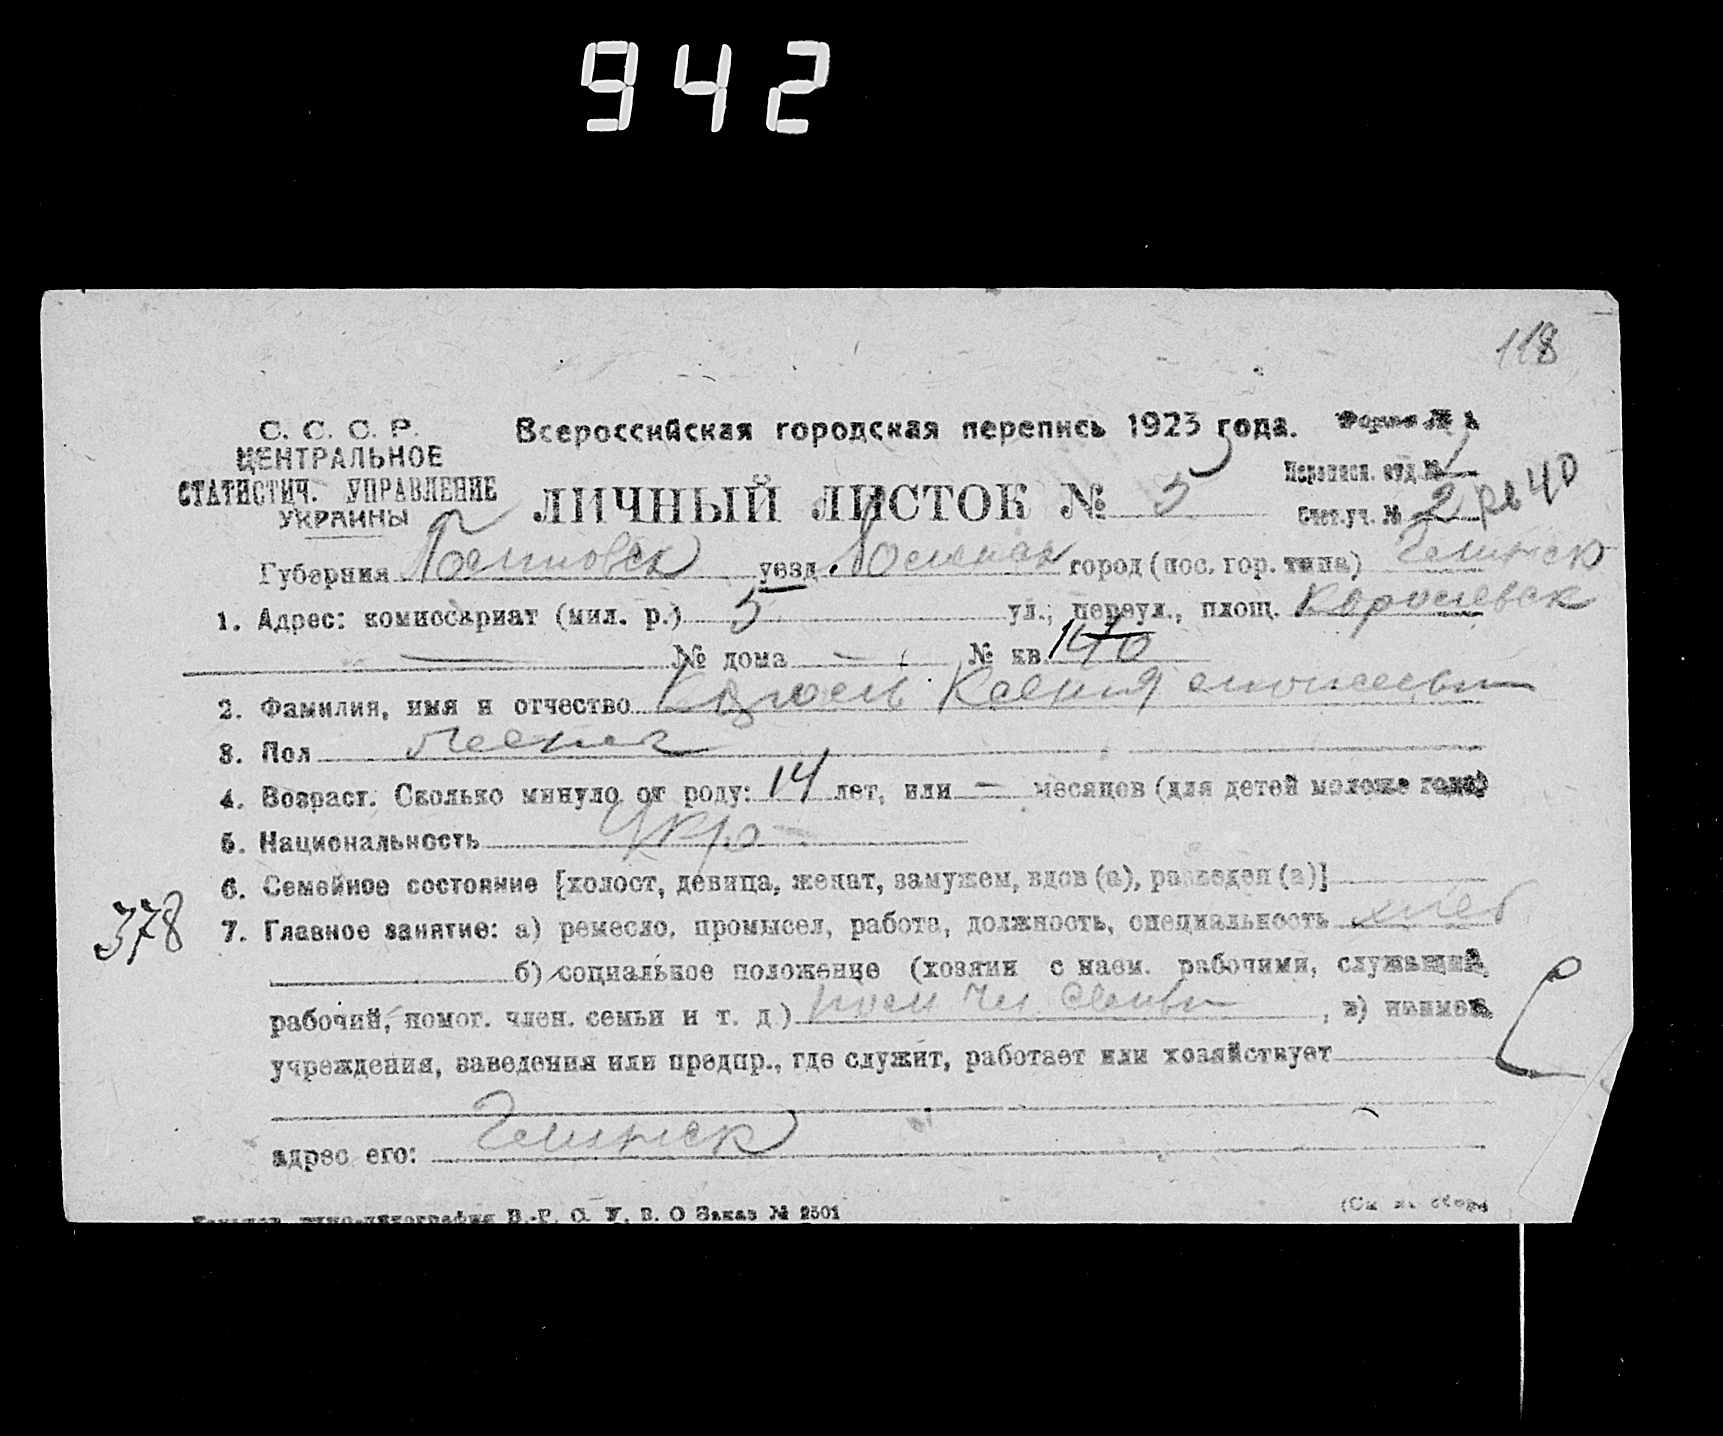 942
118
С. С. С. Р.
ЦЕНТРАЛЬНОЕ
СТАТИСТИЧ. УПРАВЛЕНИЕ
УКРАИНЫ
Всероссийская городская перепись 1923 года.
Форма № 1
ЛИЧНЫЙ ЛИСТОК № 5
Переписн. отд. № 1
Счет. уч. № 2 40
Губерния уезд город (пос. гор. типа)
1. Адрес: комиссариат (мил. р.) 5 ул., переул., площ.
— № дома — № кв. 140
2. Фамилия, имя и отчество Ксения
3. Пол
4. Возраст. Сколько минуло от роду: 14 лет, или — месяцев (для детей моложе года)
5. Национальность Укр
6. Семейное состояние [холост, девица, женат, замужем, вдов (а), разведен (а)]
378
7. Главное занятие: а) ремесло, промысел, работа, должность, специальность хлеб
б) социальное положение (хозяин с наем. рабочими, служащий,
рабочий, помог. член. семьи и т. д.) пом чл семьи, в) наимен.
учреждения, заведения или предпр., где служит, работает или хозяйствует
адрес его:
типо-литография В.-Г. О. У. В. О Заказ № 2501
(См. на обор.